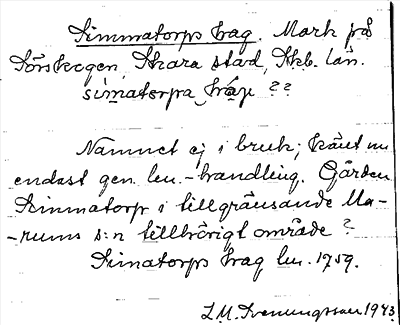 Simmatorps hag. Mark på
Sörskogen, Skara stad, Skb. län.
simatorpa ??
Namnet ej i bruk; känt nu
endast gen. lm.-handling. Gården
Simmatorp i tillgränsande Ma-
-rums s:n tillhörigt område?
Simatorps hag lm. 1759.
L.M. Svenungsson 1943.